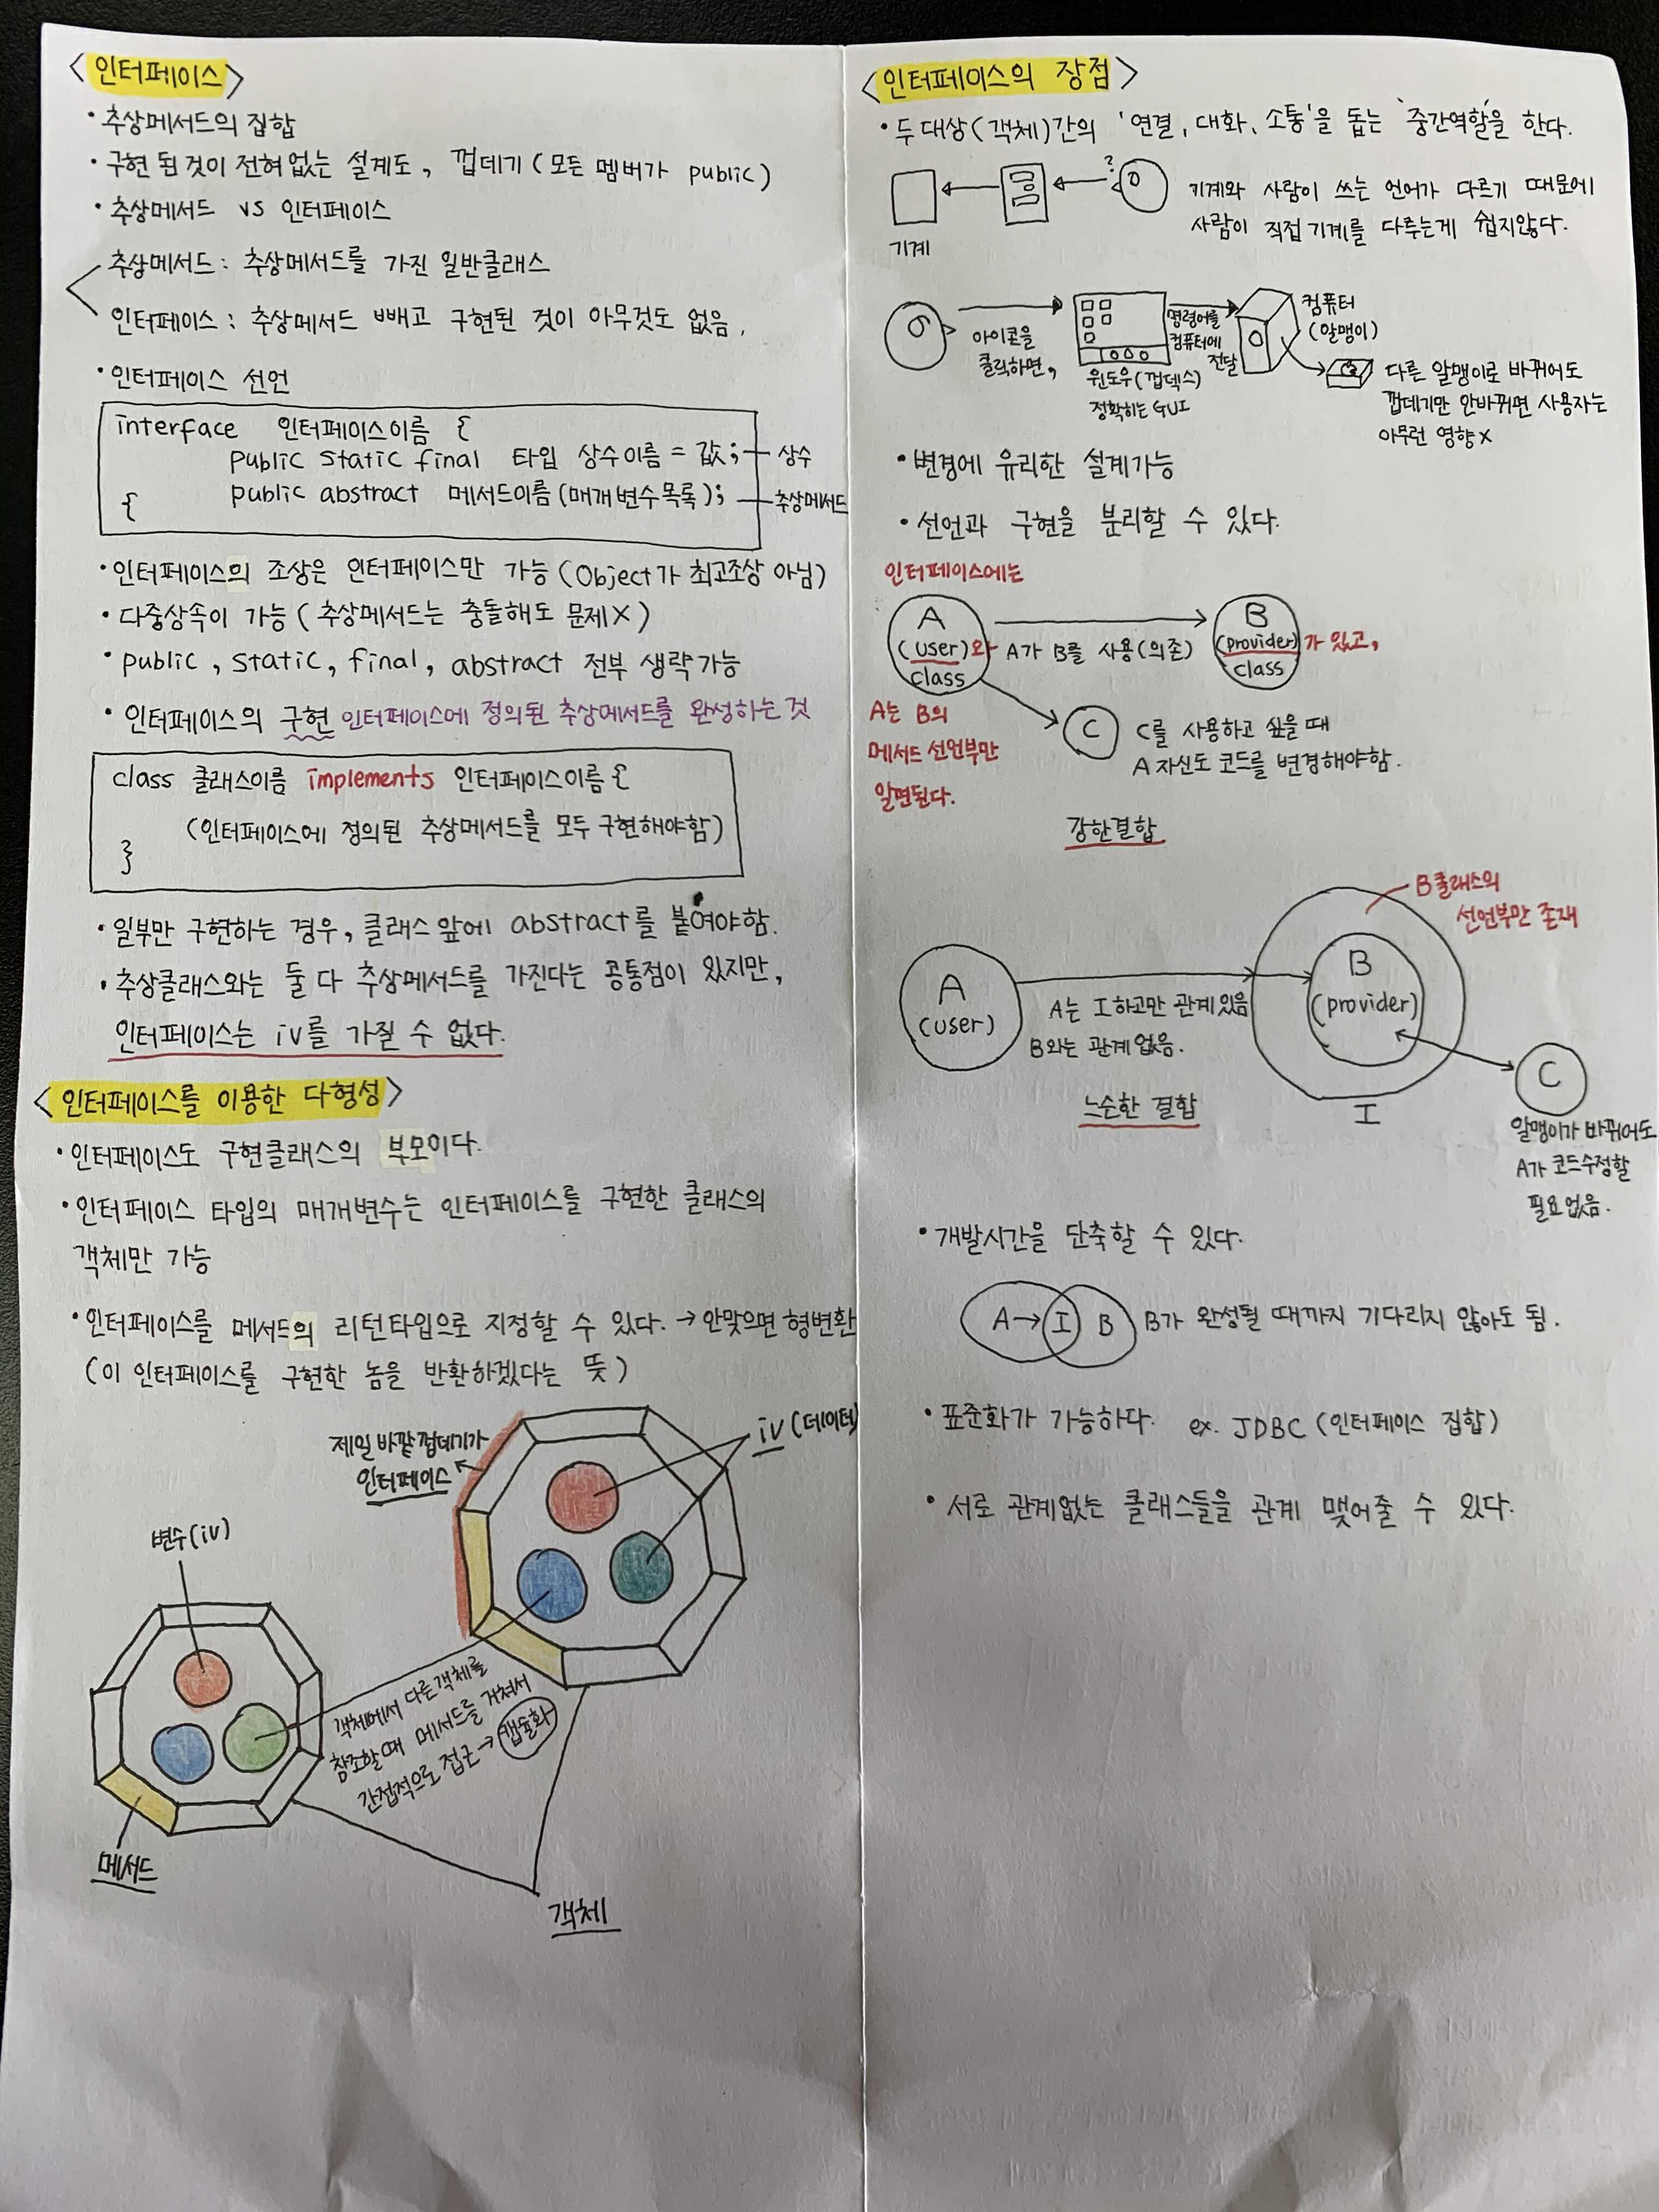 <인터페이스>
• 추상메서드의 집합
• 구현 된 것이 전혀없는 설계도, 껍데기 (모든 멤버가 public)
• 추상메서드 vs 인터페이스
추상메서드 : 추상메서드를 가진 일반클래스
인터페이스 : 추상메서드 빼고 구현된 것이 아무것도 없음.
• 인터페이스 선언
interface 인터페이스이름 {
public static final 타입 상수이름 = 값; 상수
public abstract 메서드이름(매개변수목록); 추상메서드
{
• 인터페이스의 조상은 인터페이스만 가능 (Object가 최고조상 아님)
• 다중상속이 가능 (추상메서드는 충돌해도 문제X)
• public, static, final, abstract 전부 생략가능
• 인터페이스의 구현 인터페이스에 정의된 추상메서드를 완성하는 것
class 클래스이름 implements 인터페이스이름 {
(인터페이스에 정의된 추상메서드를 모두 구현해야함)
}
• 일부만 구현하는 경우, 클래스 앞에 abstract를 붙여야함.
• 추상클래스와는 둘 다 추상메서드를 가진다는 공통점이 있지만,
인터페이스는 iv를 가질 수 없다.
<인터페이스를 이용한 다형성>
• 인터페이스도 구현클래스의 부모이다.
• 인터페이스 타입의 매개변수는 인터페이스를 구현한 클래스의
객체만 가능
• 인터페이스를 메서드의 리턴타입으로 지정할 수 있다. → 안맞으면 형변환
(이 인터페이스를 구현한 놈을 반환하겠다는 뜻)
제일 바깥껍데기가
인터페이스
iv (데이터)
변수(iv)
객체에서 다른객체를
참조할때 메서드를 거쳐서
간접적으로 접근 → 캡슐화
메서드
객체
<인터페이스의 장점>
• 두 대상(객체)간의 '연결, 대화, 소통'을 돕는 '중간역할'을 한다.
?
기계
기계와 사람이 쓰는 언어가 다르기 때문에
사람이 직접 기계를 다루는게 쉽지않다.
아이콘을
클릭하면,
윈도우(껍덱스)
정확히는 GUI
명령어를
컴퓨터에
전달
컴퓨터
(알맹이)
다른 알맹이로 바뀌어도
껍데기만 안바뀌면 사용자는
아무런 영향X
• 변경에 유리한 설계가능
• 선언과 구현을 분리할 수 있다.
인터페이스에는
A
(user)와
class
A가 B를 사용(의존)
B
(provider)가 있고,
class
A는 B의
메서드 선언부만
알면된다.
C
C를 사용하고 싶을 때
A 자신도 코드를 변경해야함.
강한결합
B클래스의
선언부만 존재
A
(user)
A는 I 하고만 관계있음
B와는 관계없음.
B
(provider)
I
C
느슨한 결합
알맹이가 바뀌어도
A가 코드수정할
필요없음.
• 개발시간을 단축할 수 있다.
A → I B B가 완성될 때까지 기다리지 않아도 됨.
• 표준화가 가능하다. ex. JDBC (인터페이스 집합)
• 서로 관계없는 클래스들을 관계 맺어줄 수 있다.